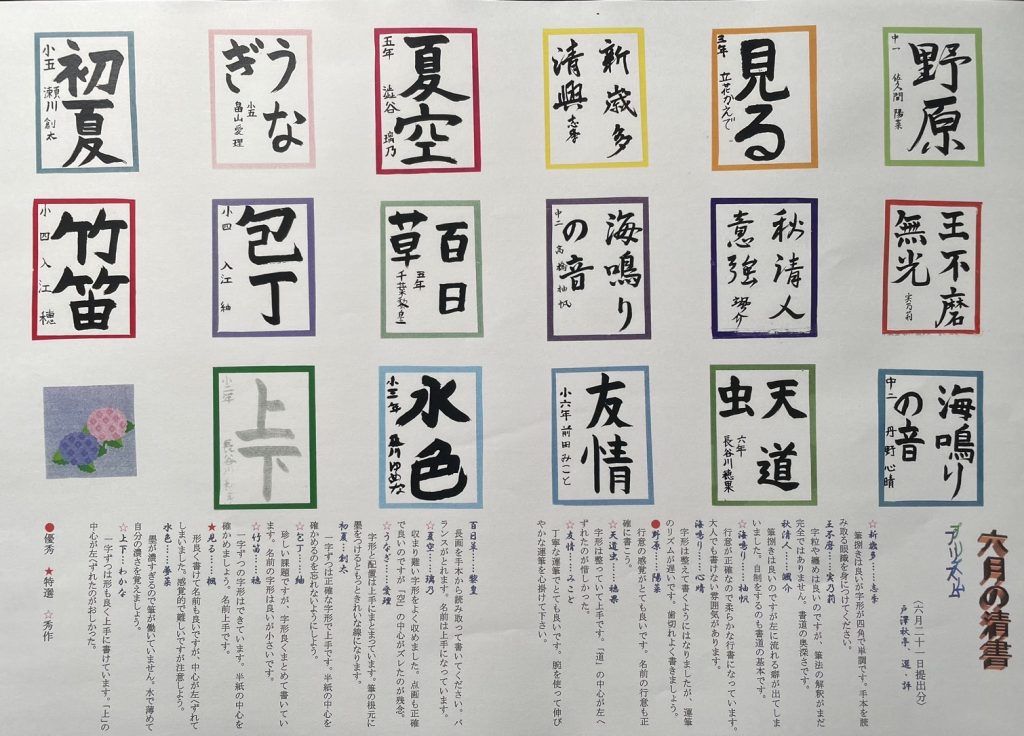 野原
中一 佐久間 陽菜
見る
三年 立花かえで
新歳多
清興
志季
夏空
五年 澁谷 璃乃
うな
ぎ
小五 畠山愛理
初夏
小五 瀬川創太
王不磨
無光
実乃莉
秋清人
意強
颯介
海鳴り
の音
中二 高橋柚帆
百日
草
五年 千葉
包丁
小四 入江 紬
竹笛
小四 入江 穂
海鳴り
の音
中二 丹野心晴
天道
虫
六年 長谷川穂果
友情
小六年 前田みこと
水色
小三年 ゆめな
上下
小二年 長谷川
六月の清書
プリズム
(六月二十一日提出分)
戸澤秋亭 選・評
☆新歳多……志季
筆捌きは良いが字形が四角で単調です。手本を読
み取る眼識を身につけてください。
王不磨……実乃莉
字粒や纏めは良いのですが、筆法の解釈がまだ
完全ではありません。書道の奥深さです。
秋清人……颯介
筆捌きは良いのですが左に流れる癖が出てしま
いました。自制をするのも書道の基本です。
☆海鳴り……柚帆
行意が正確なので柔らかな行書になっています。
大人でも書けない雰囲気があります。
海鳴り……心晴
字形は整えて書くようにはなりましたが、運筆
のリズムが遅いです。歯切れよく書きましょう。
●野原……陽菜
行意の感覚がとても良いです。名前の行意も正
確に書こう。
☆天道虫……穂果
字形は整っていて上手です。「道」の中心が左へ
ずれたのが惜しかった。
☆友情……みこと
丁寧な運筆でとても良いです。腕を使って伸び
やかな運筆を心掛けて下さい。
百日草……黎皇
長画を手本から読み取って書いてください。バ
ランスがとれます。名前は上手になっています。
☆夏空……璃乃
収まり難い字形をよく収めました。点画も正確
で良いのですが「空」の中心がズレたのが残念。
☆うなぎ……愛理
字形と配置は上手にまとまっています。筆の根元に
墨をつけるともっときれいな線になります。
初夏……創太
一字ずつは正確な字形で上手です。半紙の中心を
確かめるのを忘れないようにしよう。
☆包丁……紬
珍しい課題ですが、字形良くまとめて書いてい
ます。名前の字形は良いが小さいです。
☆竹笛……穂
一字ずつの字形はできています。半紙の中心を
確かめましょう。名前上手です。
★見る……楓
形良く書けて名前も良いですが、中心が左へずれて
しまいました。感覚的で難しいですが注意しよう。
水色……夢菜
墨が濃すぎるので筆が働いていません。水で薄めて
自分の濃さを覚えましょう。
☆上下……わかな
一字ずつは形も良く上手に書けています。「上」の
中心が左へずれたのがおしかった。
●優秀 ★特選 ☆秀作